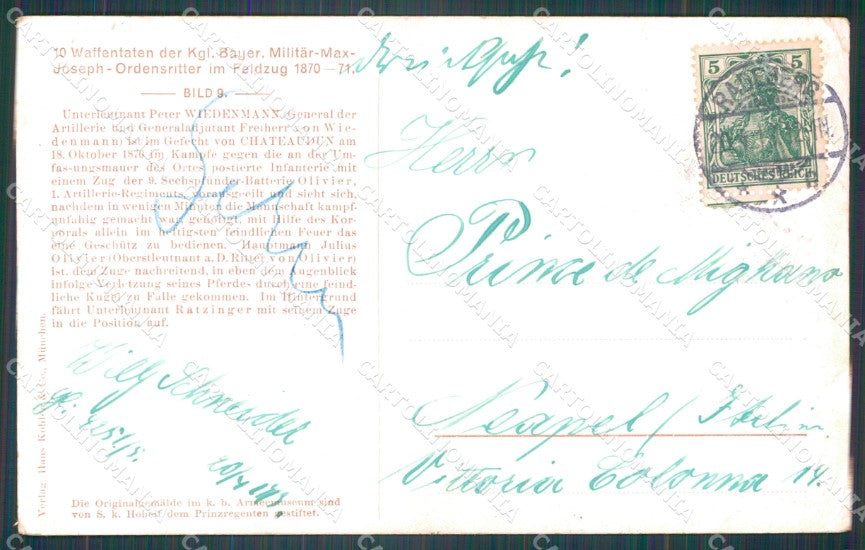 10 Waffentaten der Kgl. Bayer. Militär-Max-
Joseph-Ordensritter im Feldzug 1870—71.
BILD 9.
Unterleutnant Peter WIEDENMANN, General der
Artillerie und Generaladjutant Freiherr von Wie-
denmann) ist im Gefecht von CHATEAUDUN am
18. Oktober 1870 im Kampfe gegen die an der Um-
fassungsmauer des Ortes postierte Infanterie mit
einem Zug der 9. Sechspfünder-Batterie Olivier,
1. Artillerie-Regiments, vorausgeeilt und sieht sich,
nachdem in wenigen Minuten die Mannschaft kampf-
unfähig gemacht war, genötigt, mit Hilfe des Kor-
porals allein im heftigsten feindlichen Feuer das
eine Geschütz zu bedienen. Hauptmann Julius
Olivier (Oberstleutnant a. D. Ritter von Olivier)
ist, dem Zuge nachreitend, in eben dem Augenblick
infolge Verletzung seines Pferdes durch eine feind-
liche Kugel zu Falle gekommen. Im Hintergrund
fährt Unterleutnant Ratzinger mit seinem Zuge
in die Position auf.
Verlag: Hans Kohler & Co., München.
Die Originalgemälde im k. b. Armeemuseum sind
von S. k. Hoheit dem Prinzregenten gestiftet.
Wilh Schneider
5
DEUTSCHES REICH
Herrn
Prince de Migliano
Neapel / Italien.
Vittoria Colonna 14.
CARTOLINOMANIA